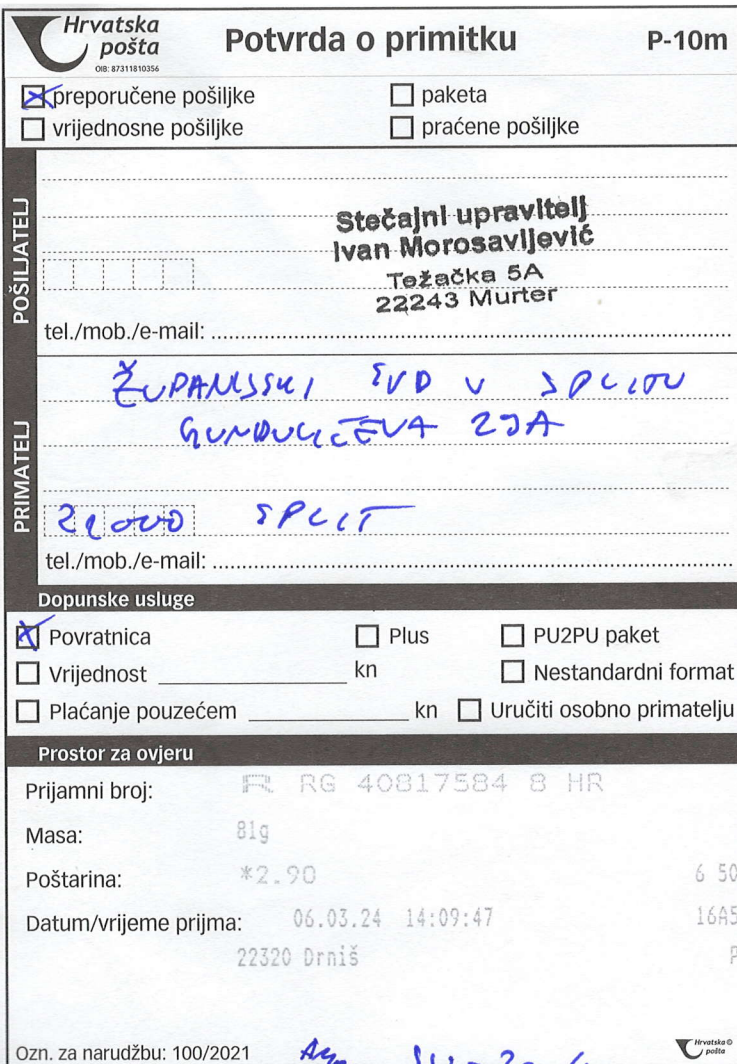 Hrvatska
pošta
OIB: 87311810356
Potvrda o primitku
P-10m
preporučene pošiljke
paketa
vrijednosne pošiljke
praćene pošiljke
POŠILJATELJ
Stečajni upravitelj
Ivan Morosavljević
Težačka 5A
22243 Murter
tel./mob./e-mail:
PRIMATELJ
ŽUPANIJSKI SUD U SPLITU
GUNDULIĆEVA 29A
21000 SPLIT
tel./mob./e-mail:
Dopunske usluge
Povratnica
Plus
PU2PU paket
Vrijednost kn
Nestandardni format
Plaćanje pouzećem kn
Uručiti osobno primatelju
Prostor za ovjeru
Prijamni broj: R RG 40817584 8 HR
Masa: 81g
Poštarina: *2.90 6 50
Datum/vrijeme prijma: 06.03.24 14:09:47 16A5
22320 Drniš P
Ozn. za narudžbu: 100/2021
Hrvatska
pošta